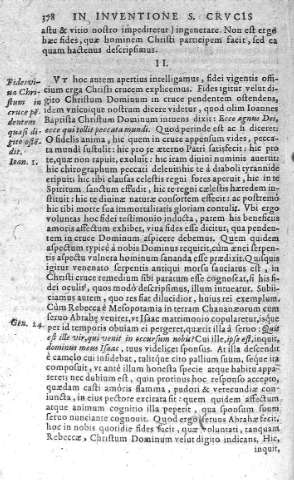 378 IN INVENTIONE S. CRVCIS
astu & vitio nostro impediretur) ingenerare. Non est ergo
hæc fides, quæ hominem Christi participem facit, sed ea
quam hactenus descripsimus.
II.
VT hoc autem apertius intelligamus, fidei vigentis offi-
cium erga Christi crucem explicemus. Fides igitur velut di-
gito Christum Dominum in cruce pendentem ostendens,
idem vnicuique nostrum dicere videtur, quod olim Ioannes
Baptista Christum Dominum intuens dixit: Ecce agnus Dei,
ecce qui tollit peccata mundi. Quod perinde est ac si diceret:
O fidelis anima, hic quem in cruce appensum vides, pecca-
ta mundi sustulit: hic pro te æterno Patri satisfecit: hic pro
te, quæ non rapuit, exoluit: hic iram diuini numinis auertit:
hic chirographum peccati deleuit: hic te à diaboli tyrannide
eripuit: hic tibi clausas cælestis regni fores aperuit, hic in te
Spiritum sanctum effudit, hic te regni cælestis hæredem in-
stituit: hic te diuinæ naturæ consortem effecit: ac postremò
hic tibi morte sua immortalitatis gloriam contulit. Vbi ergo
voluntas hoc fidei testimonio inducta, patrem his beneficiis
amoris affectum exhibet, viua fides esse dicitur, qua penden-
tem in cruce Dominum aspicere debemus. Quem quidem
aspectum typicè à nobis Dominus requirit, cùm ænei serpen-
tis aspectu vulnera hominum sananda esse prædixit. Quisquis
igitur venenato serpentis antiqui morsu sauciatus est, in
Christi cruce remedium sibi paratum esse cognoscat, si his fi-
dei oculis, quos modò descripsimus, illum intueatur. Subii-
ciamus autem, quo res fiat dilucidior, huius rei exemplum.
Cùm Rebecca è Mesopotamia in terram Chananæorum cum
seruo Abrahę veniret, vt Isaac matrimonio copularetur, isque
per id temporis obuiam ei pergeret, quærit illa à seruo: Quis
est ille vir, qui venit in occursum nobis? Cui ille, ipse est, inquit,
dominus meus Isaac, tuus videlicet sponsus. At illa descendit
è camelo cui insidebat, tulitque cito pallium suum, seque ita
composuit, vt antè illum honesta specie atque habitu appa-
reret; nec dubium est, quin protinus hoc responso accepto,
quædam casti amoris flamma, pudori & verecundiæ con-
iuncta, in eius pectore excitata sit: quem quidem affectum
atque animum cognitio illa peperit, qua sponsum suum
seruo nunciante cognouit. Quod ergo seruus Abrahæ fecit,
hoc in nobis quotidie fides facit, quæ voluntati, tanquam
Rebeccæ, Christum Dominum velut digito indicans, Hic,
inquit,
Fides vi-
ua Chri-
stum in
cruce pē-
dentem
quasi di-
gito ostē-
dit.
Ioan. 1.
Gen. 24.